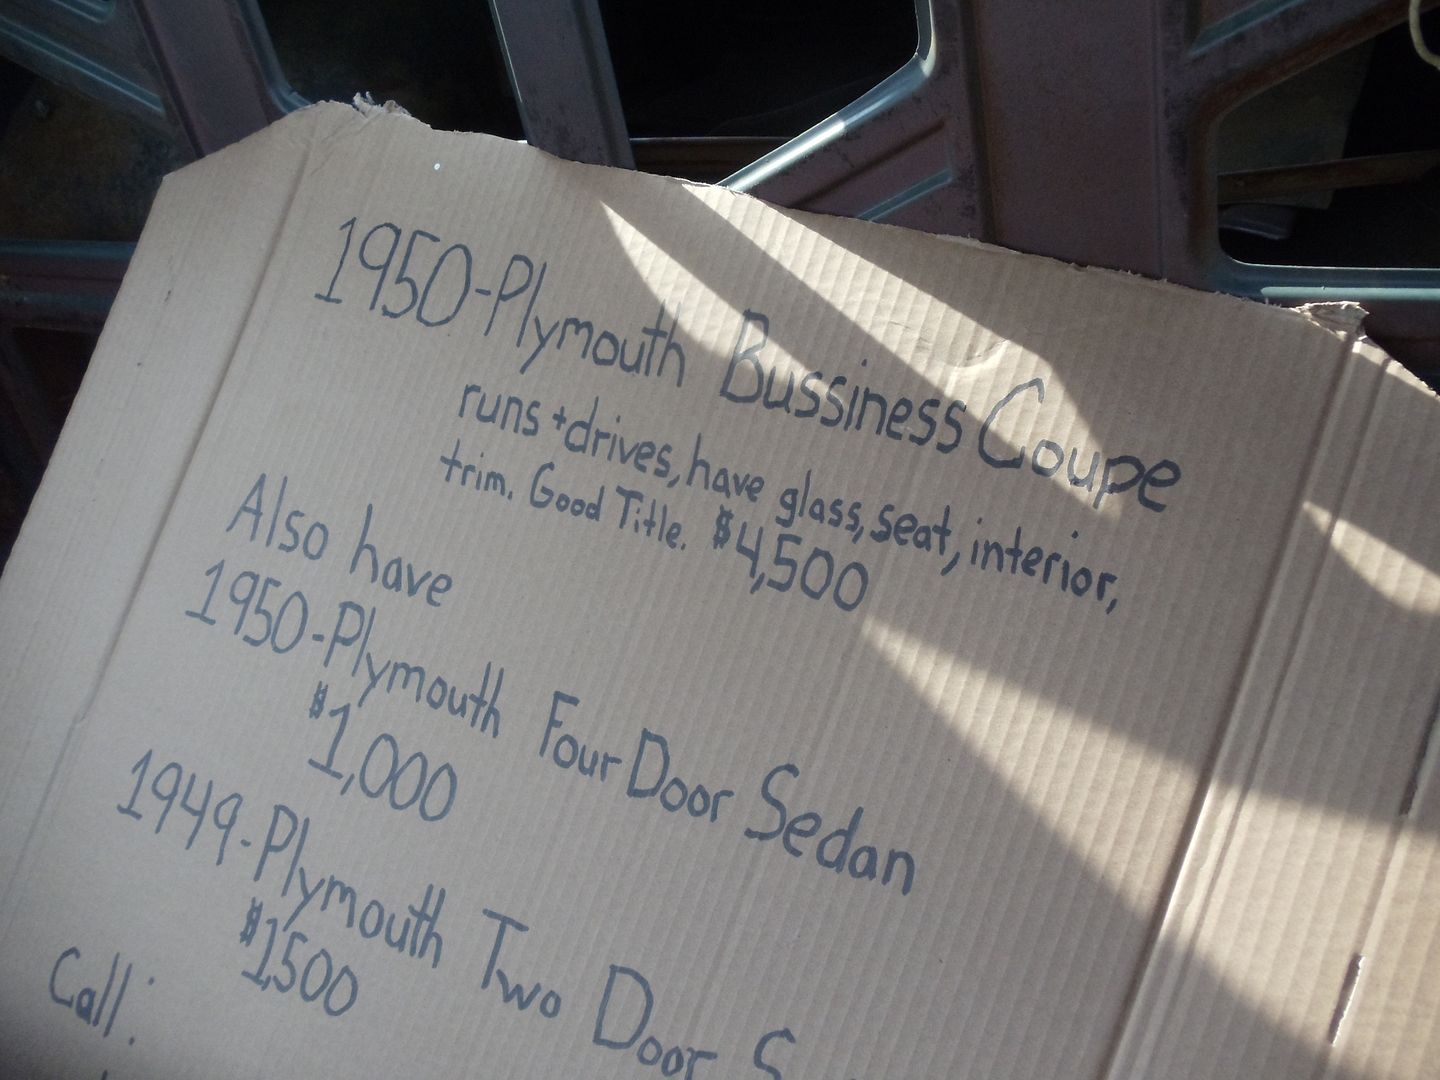 1950-Plymouth Bussiness Coupe
runs + drives, have glass, seat, interior,
trim. Good Title. $4,500
Also have
1950-Plymouth Four Door Sedan
$1,000
1949-Plymouth Two Door
$1,500
Call: